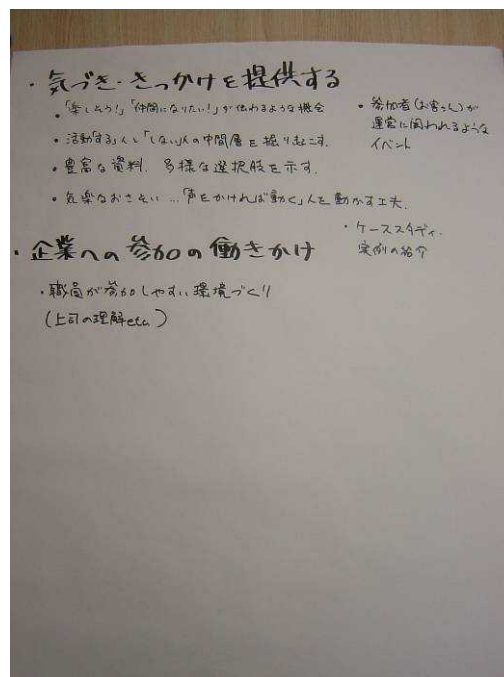 ・気づき・きっかけを提供する
・「楽しそう!」「仲間になりたい!」が伝わるような機会
・活動「する」人と「しない」人の中間層を掘り起こす.
・豊富な資料.多様な選択肢を示す.
・気楽なおさそい…「声をかければ動く」人を動かす工夫.
・参加者(お客さん)が
運営に関われるような
イベント
・ケーススタディ.
実例の紹介
・企業への参加の働きかけ
・職員が参加しやすい環境づくり
(上司の理解etc.)